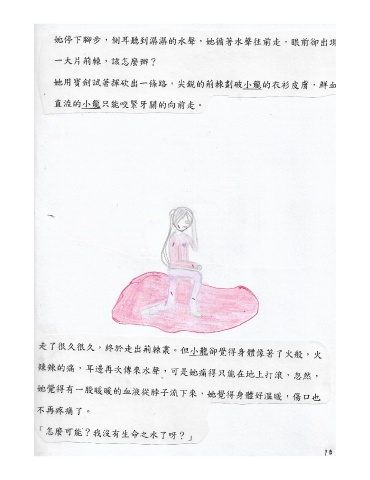 她停下腳步，側耳聽到潺潺的水聲，她循著水聲往前走，眼前卻出現
一大片荊棘，該怎麼辦？
她用寶劍試著揮砍出一條路，尖銳的荊棘劃破小龍的衣衫皮膚，鮮血
直流的小龍只能咬緊牙關的向前走。
走了很久很久，終於走出荊棘叢。但小龍卻覺得身體像著了火般，火
辣辣的痛，耳邊再次傳來水聲，可是她痛得只能在地上打滾，忽然，
她覺得有一股暖暖的血液從脖子流下來，她覺得身體好溫暖，傷口也
不再疼痛了。
「怎麼可能？我沒有生命之水了呀？」
10